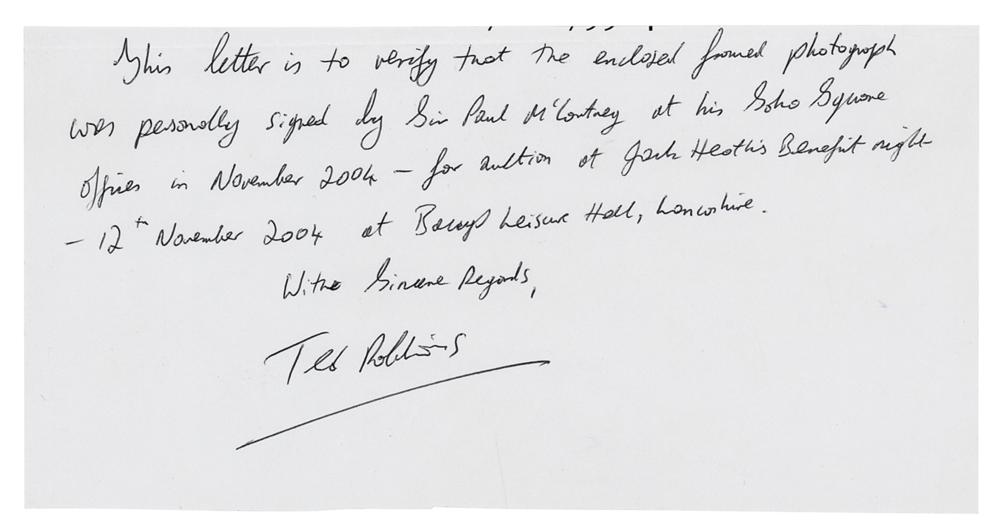 This letter is to verify that the enclosed framed photograph
was personally signed by Sir Paul McCartney at his Soho Square
offices in November 2004 – for auction at Jack Heath's Benefit night
– 12th November 2004 at Leisure Hall, Lancashire.
With Sincere Regards,
Ted Robbins